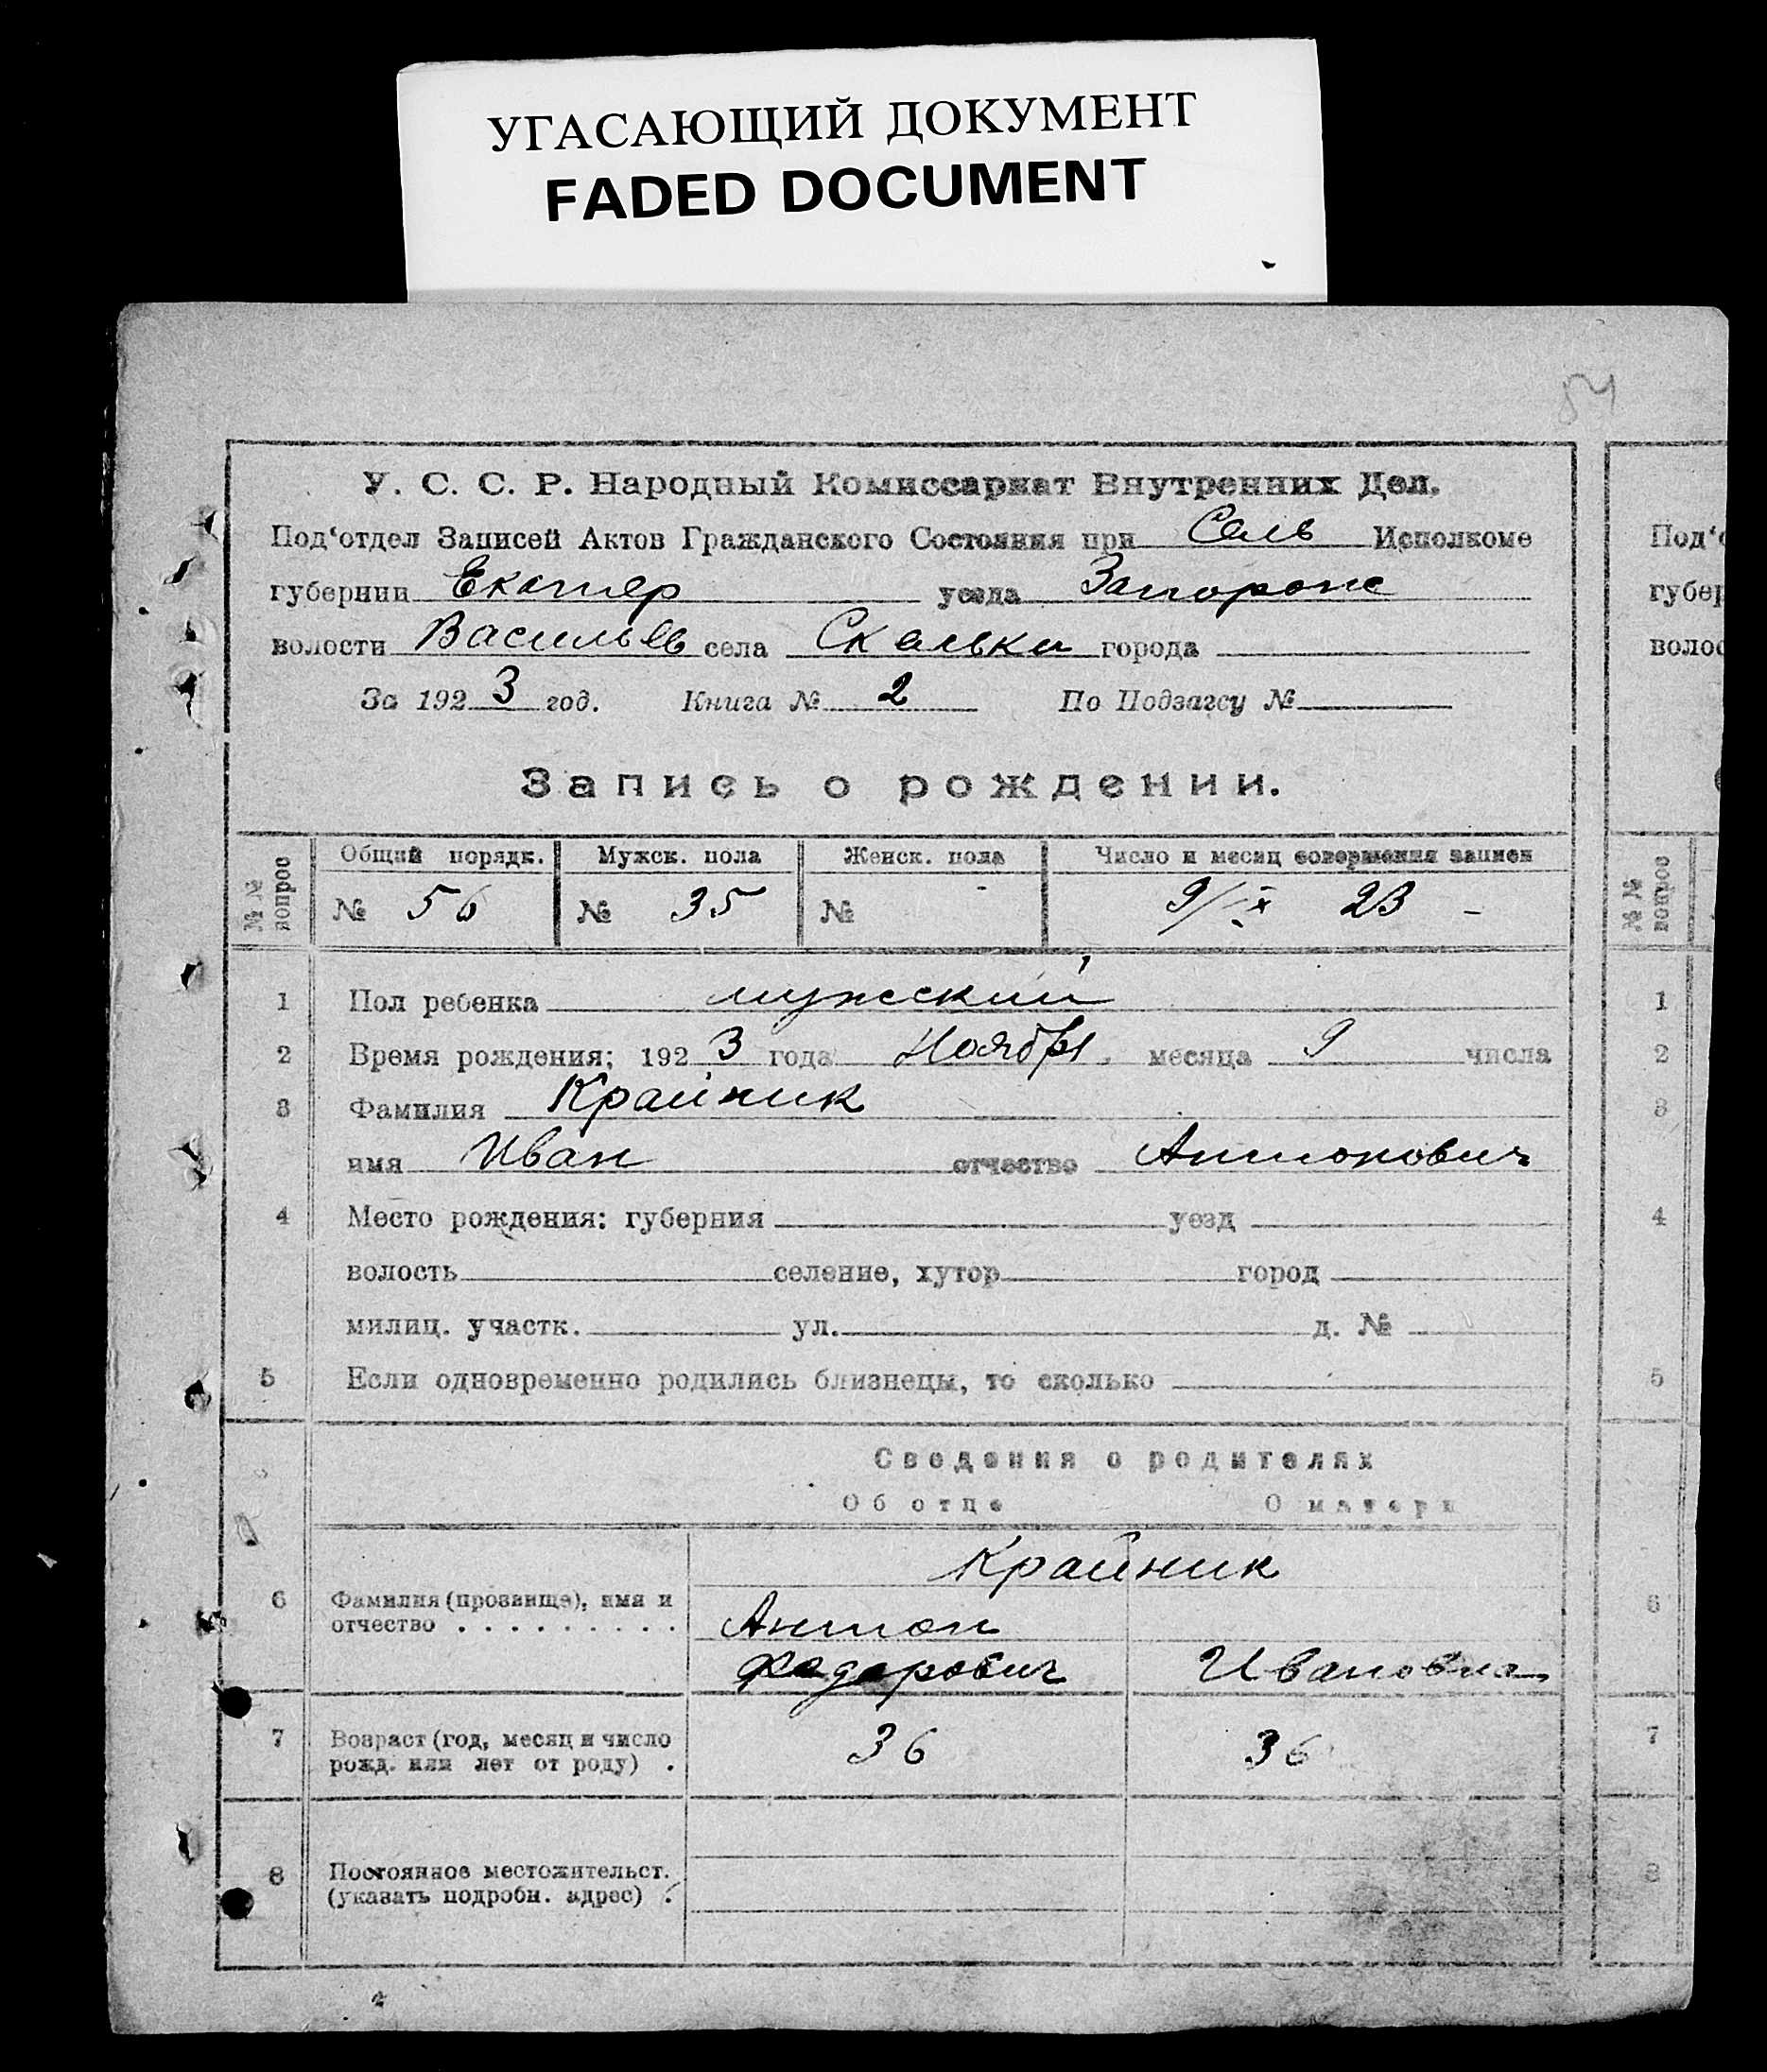 УГАСАЮЩИЙ ДОКУМЕНТ
FADED DOCUMENT
У. С. С. Р. Народный Комиссариат Внутренних Дел.
Под‘отдел Записей Актов Гражданского Состояния при Сель Исполкоме
губернии Екатер уезда Запорож
волости Васильев села Скельки города
За 1923 год. Книга № 2 По Подзагсу №
Запись о рождении.
№ № вопрос Общий порядк. Мужск. пола Женск. пола Число и месяц совершения записи
№ 56 № 35 № - 9/IX 23 -
1 Пол ребенка мужеский
2 Время рождения; 1923 года Ноября месяца 9 числа
3 Фамилия Крайник
имя Иван отчество Антонович
4 Место рождения: губерния уезд
волость селение, хутор город
милиц. участк. ул. д. №
5 Если одновременно родились близнецы, то сколько
Сведения о родителях
Об отце О матери
Крайник
6 Фамилия (прозвище), имя и
отчество . . . . . . . . . . Антон
Федорович Ивановна
7 Возраст (год, месяц и число
рожд. или лет от роду) . 36 36
8 Постоянное местожительст.
(указать подробн. адрес) .
Под‘о
губер
волос
№ № вопрос
1
2
3
4
5
6
7
8